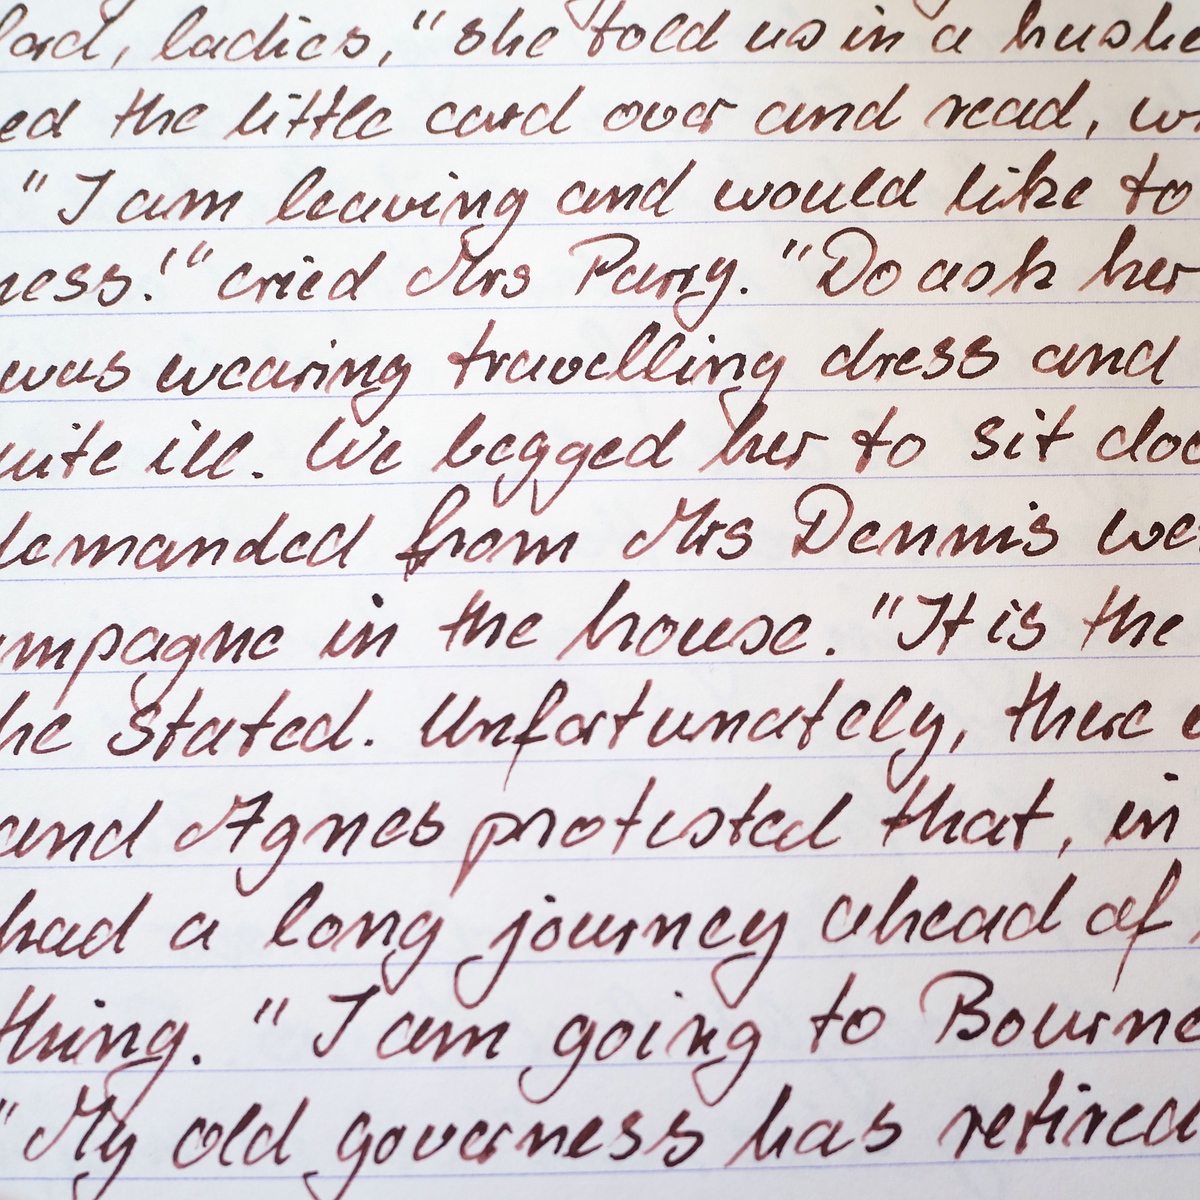 lord, ladies," she told us in a hushe
ed the little card over and read, w
"I am leaving and would like to
ness!" cried Mrs Parry. "Do ask her
was wearing travelling dress and
uite ill. We begged her to sit do
demanded from Mrs Dennis we
mpagne in the house. "It is the
he stated. Unfortunately, there
and Agnes protested that, in
had a long journey ahead of
thing. "I am going to Bourne
"My old governess has retired